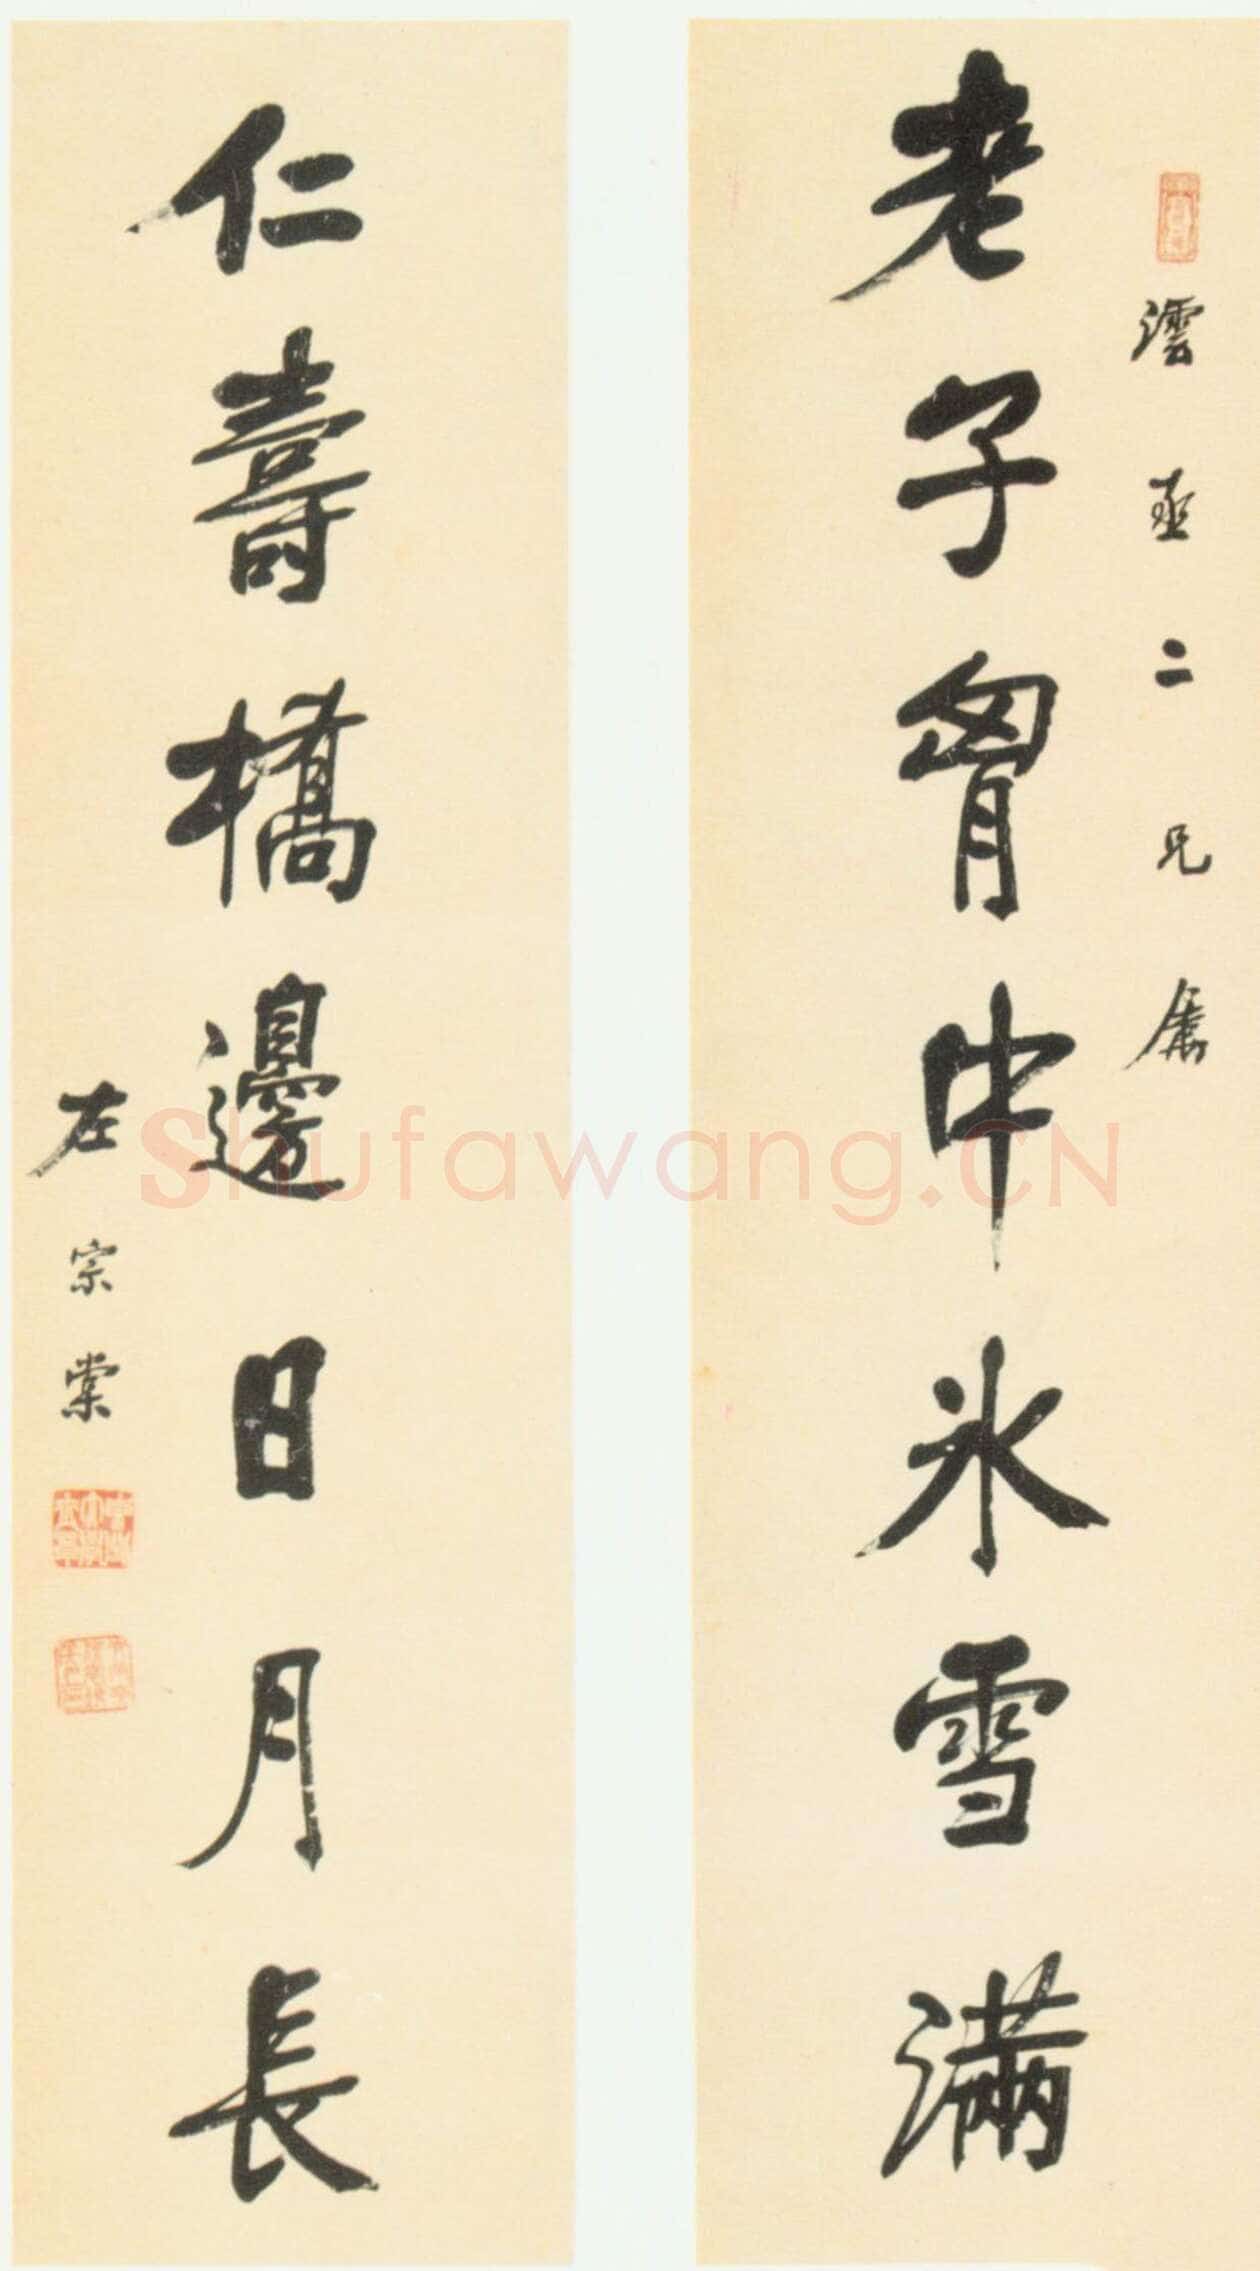 澐亟二兄屬
老子胷中冰雪滿
仁壽橋邊日月長
左宗棠
Shufawang.CN